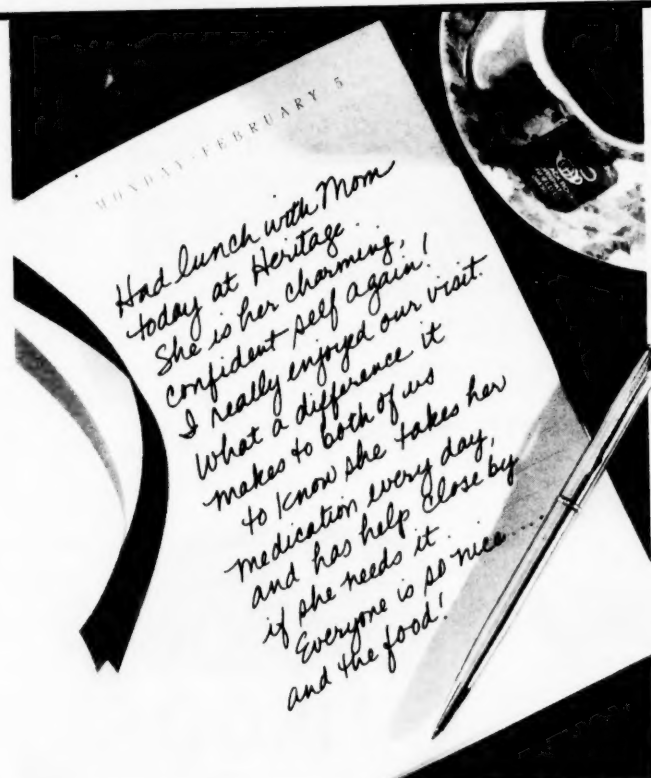 MONDAY · FEBRUARY 5
Had lunch with Mom
today at Heritage.
She is her charming,
confident self again!
I really enjoyed our visit.
What a difference it
makes to both of us
to know she takes her
medication every day,
and has help close by
if she needs it.
Everyone is so nice....
and the food!